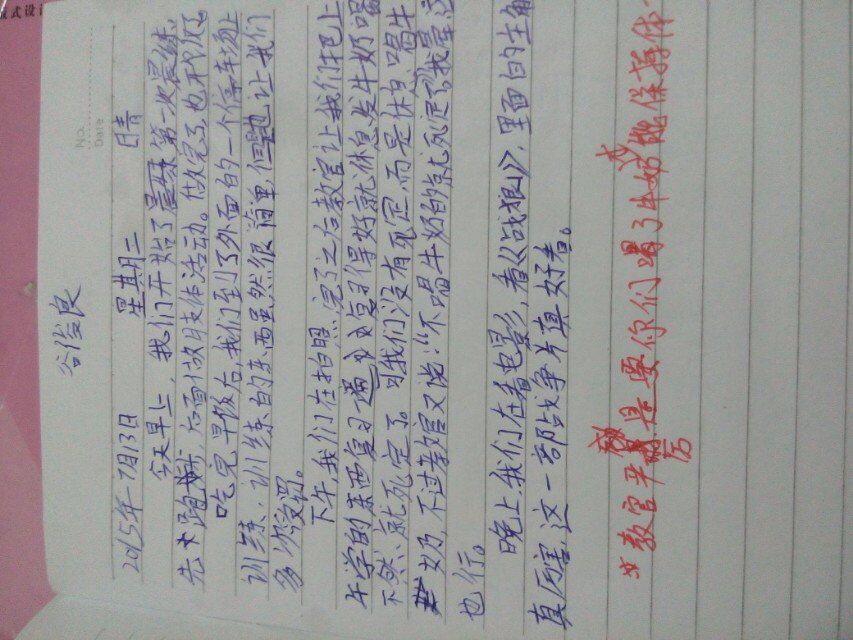 式设计
No.
Date
谷俊良
2015年7月13日 星期二 晴
今天早上，我们开始了晨练第一次晨练，
先跑步，后面做肢体活动。做完了，也开始
吃完早饭后，我们到了外面的一个停车场上
训练、训练的东西虽然很简单，但也让我们
多次没罚。
下午，我们在拍照，完了之后教官让我们把上
午学的东西复习一遍，复习得好就休息，发牛奶喝
不然、就死定了。可我们没有死定，而是休息，喝牛
奶，不过教官又说："不喝牛奶的就死定了，我是
也行。
晚上，我们在看电影，看《战狼》，里面的主角
真厉害，这一部战争片真好看。
*教官严厉，是要你们喝了牛奶能保持体